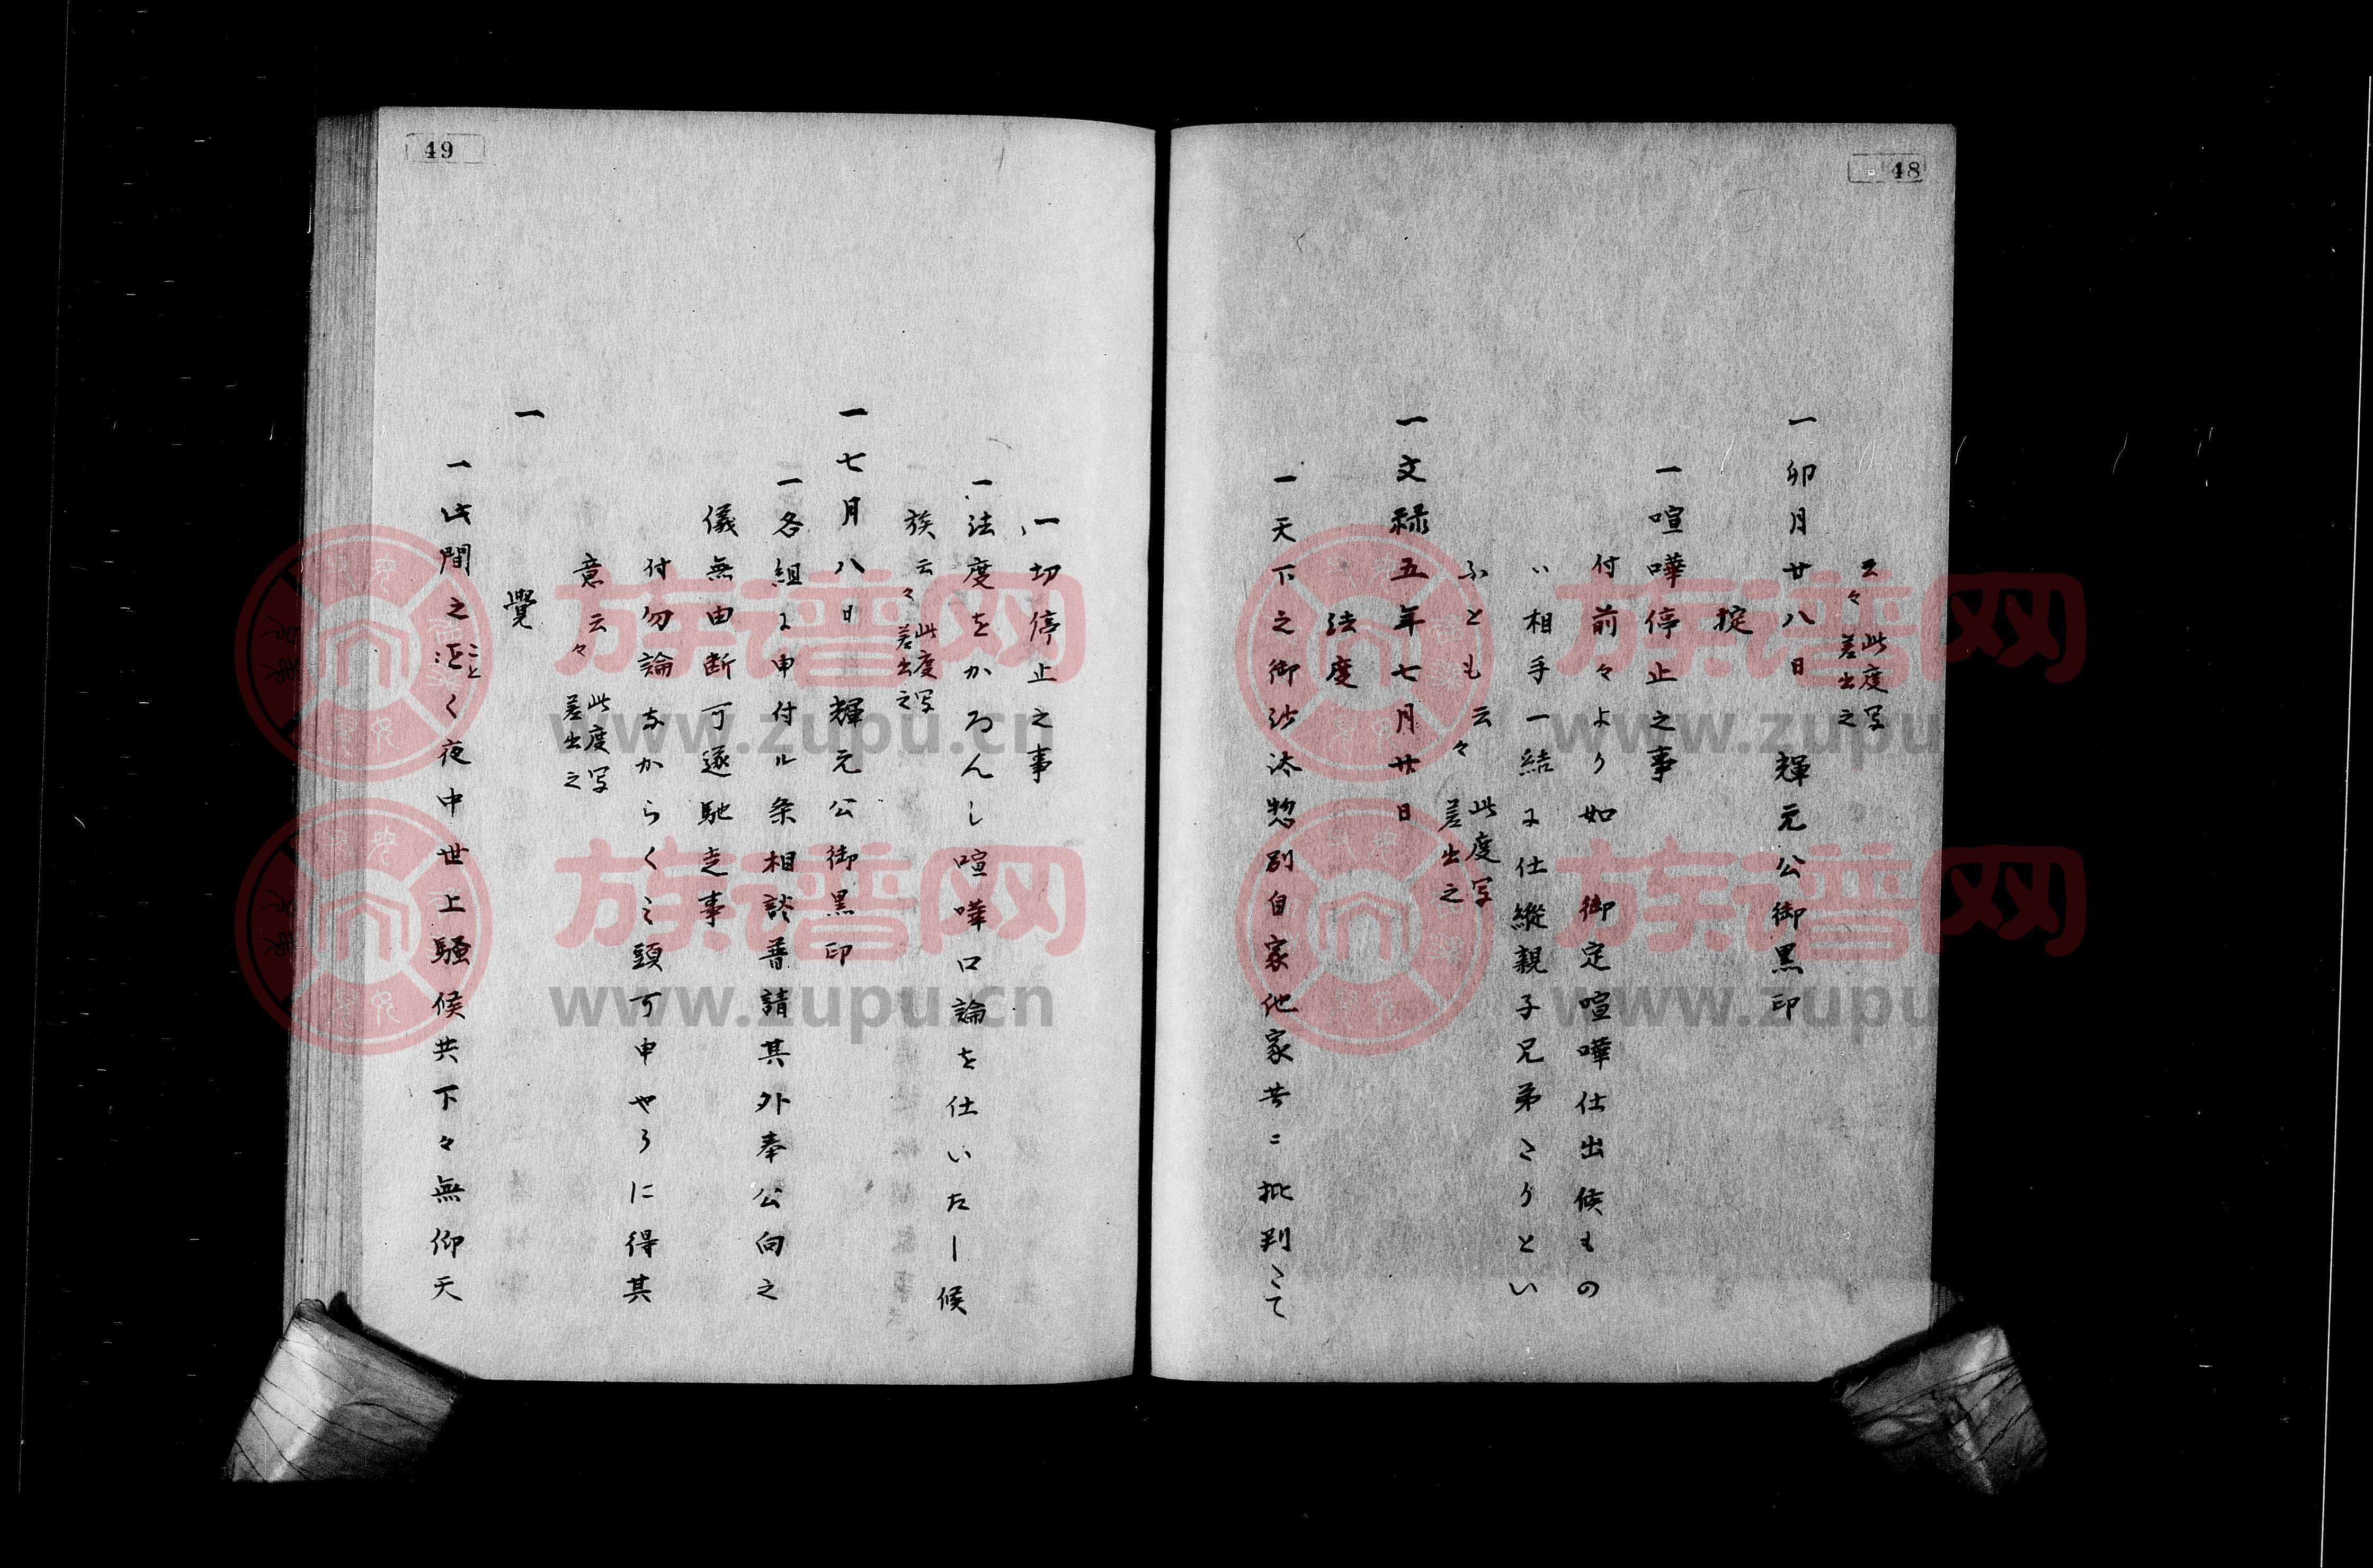 48
云々 此度写差出之
一卯月廿八日 輝元公御黒印
掟
一喧嘩停止之事
付前々より如 御定喧嘩仕出候もの
ハ相手一結ニ仕縦親子兄弟たりとい
ふとも云々 此度写差出之
一文禄五年七月廿日
法度
一天下之御沙汰惣別自家他家共ニ批判
49
一切停止之事
一法度をかろんし喧嘩口論を仕いたし候
族云々 此度写差出之
一七月八日 輝元公御黒印
一各組ニ申付ル条相談普請其外奉公向之
儀無由断可遂馳走事
付勿論なからくミ頭可申やうに得其
意云々 此度写差出之
一 覺
一此間之こと く夜中世上騒候共下々無仰天
族谱网
www.zupu.cn
族谱网
www.zupu.cn
族谱网
www.zupu
族谱网
www.zupu